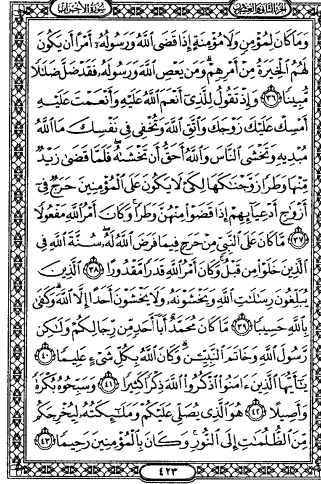 الجزء الثاني والعشرون سورة الأحزاب
وَمَا كَانَ لِمُؤْمِنٍ وَلَا مُؤْمِنَةٍ إِذَا قَضَى ٱللَّهُ وَرَسُولُهُۥٓ أَمْرًا أَن يَكُونَ
لَهُمُ ٱلْخِيَرَةُ مِنْ أَمْرِهِمْ ۗ وَمَن يَعْصِ ٱللَّهَ وَرَسُولَهُۥ فَقَدْ ضَلَّ ضَلَٰلًا
مُّبِينًا ٣٦ وَإِذْ تَقُولُ لِلَّذِىٓ أَنْعَمَ ٱللَّهُ عَلَيْهِ وَأَنْعَمْتَ عَلَيْهِ
أَمْسِكْ عَلَيْكَ زَوْجَكَ وَٱتَّقِ ٱللَّهَ وَتُخْفِى فِى نَفْسِكَ مَا ٱللَّهُ
مُبْدِيهِ وَتَخْشَى ٱلنَّاسَ وَٱللَّهُ أَحَقُّ أَن تَخْشَىٰهُ ۖ فَلَمَّا قَضَىٰ زَيْدٌ
مِّنْهَا وَطَرًا زَوَّجْنَٰكَهَا لِكَىْ لَا يَكُونَ عَلَى ٱلْمُؤْمِنِينَ حَرَجٌ فِىٓ
أَزْوَٰجِ أَدْعِيَآئِهِمْ إِذَا قَضَوْا۟ مِنْهُنَّ وَطَرًا ۚ وَكَانَ أَمْرُ ٱللَّهِ مَفْعُولًا
٣٧ مَّا كَانَ عَلَى ٱلنَّبِىِّ مِنْ حَرَجٍ فِيمَا فَرَضَ ٱللَّهُ لَهُۥ ۖ سُنَّةَ ٱللَّهِ فِى
ٱلَّذِينَ خَلَوْا۟ مِن قَبْلُ ۚ وَكَانَ أَمْرُ ٱللَّهِ قَدَرًا مَّقْدُورًا ٣٨ ٱلَّذِينَ
يُبَلِّغُونَ رِسَٰلَٰتِ ٱللَّهِ وَيَخْشَوْنَهُۥ وَلَا يَخْشَوْنَ أَحَدًا إِلَّا ٱللَّهَ ۗ وَكَفَىٰ
بِٱللَّهِ حَسِيبًا ٣٩ مَّا كَانَ مُحَمَّدٌ أَبَآ أَحَدٍ مِّن رِّجَالِكُمْ وَلَٰكِن
رَّسُولَ ٱللَّهِ وَخَاتَمَ ٱلنَّبِيِّۦنَ ۗ وَكَانَ ٱللَّهُ بِكُلِّ شَىْءٍ عَلِيمًا ٤٠
يَٰٓأَيُّهَا ٱلَّذِينَ ءَامَنُوا۟ ٱذْكُرُوا۟ ٱللَّهَ ذِكْرًا كَثِيرًا ٤١ وَسَبِّحُوهُ بُكْرَةً
وَأَصِيلًا ٤٢ هُوَ ٱلَّذِى يُصَلِّى عَلَيْكُمْ وَمَلَٰٓئِكَتُهُۥ لِيُخْرِجَكُم
مِّنَ ٱلظُّلُمَٰتِ إِلَى ٱلنُّورِ ۚ وَكَانَ بِٱلْمُؤْمِنِينَ رَحِيمًا ٤٣
٤٢٣